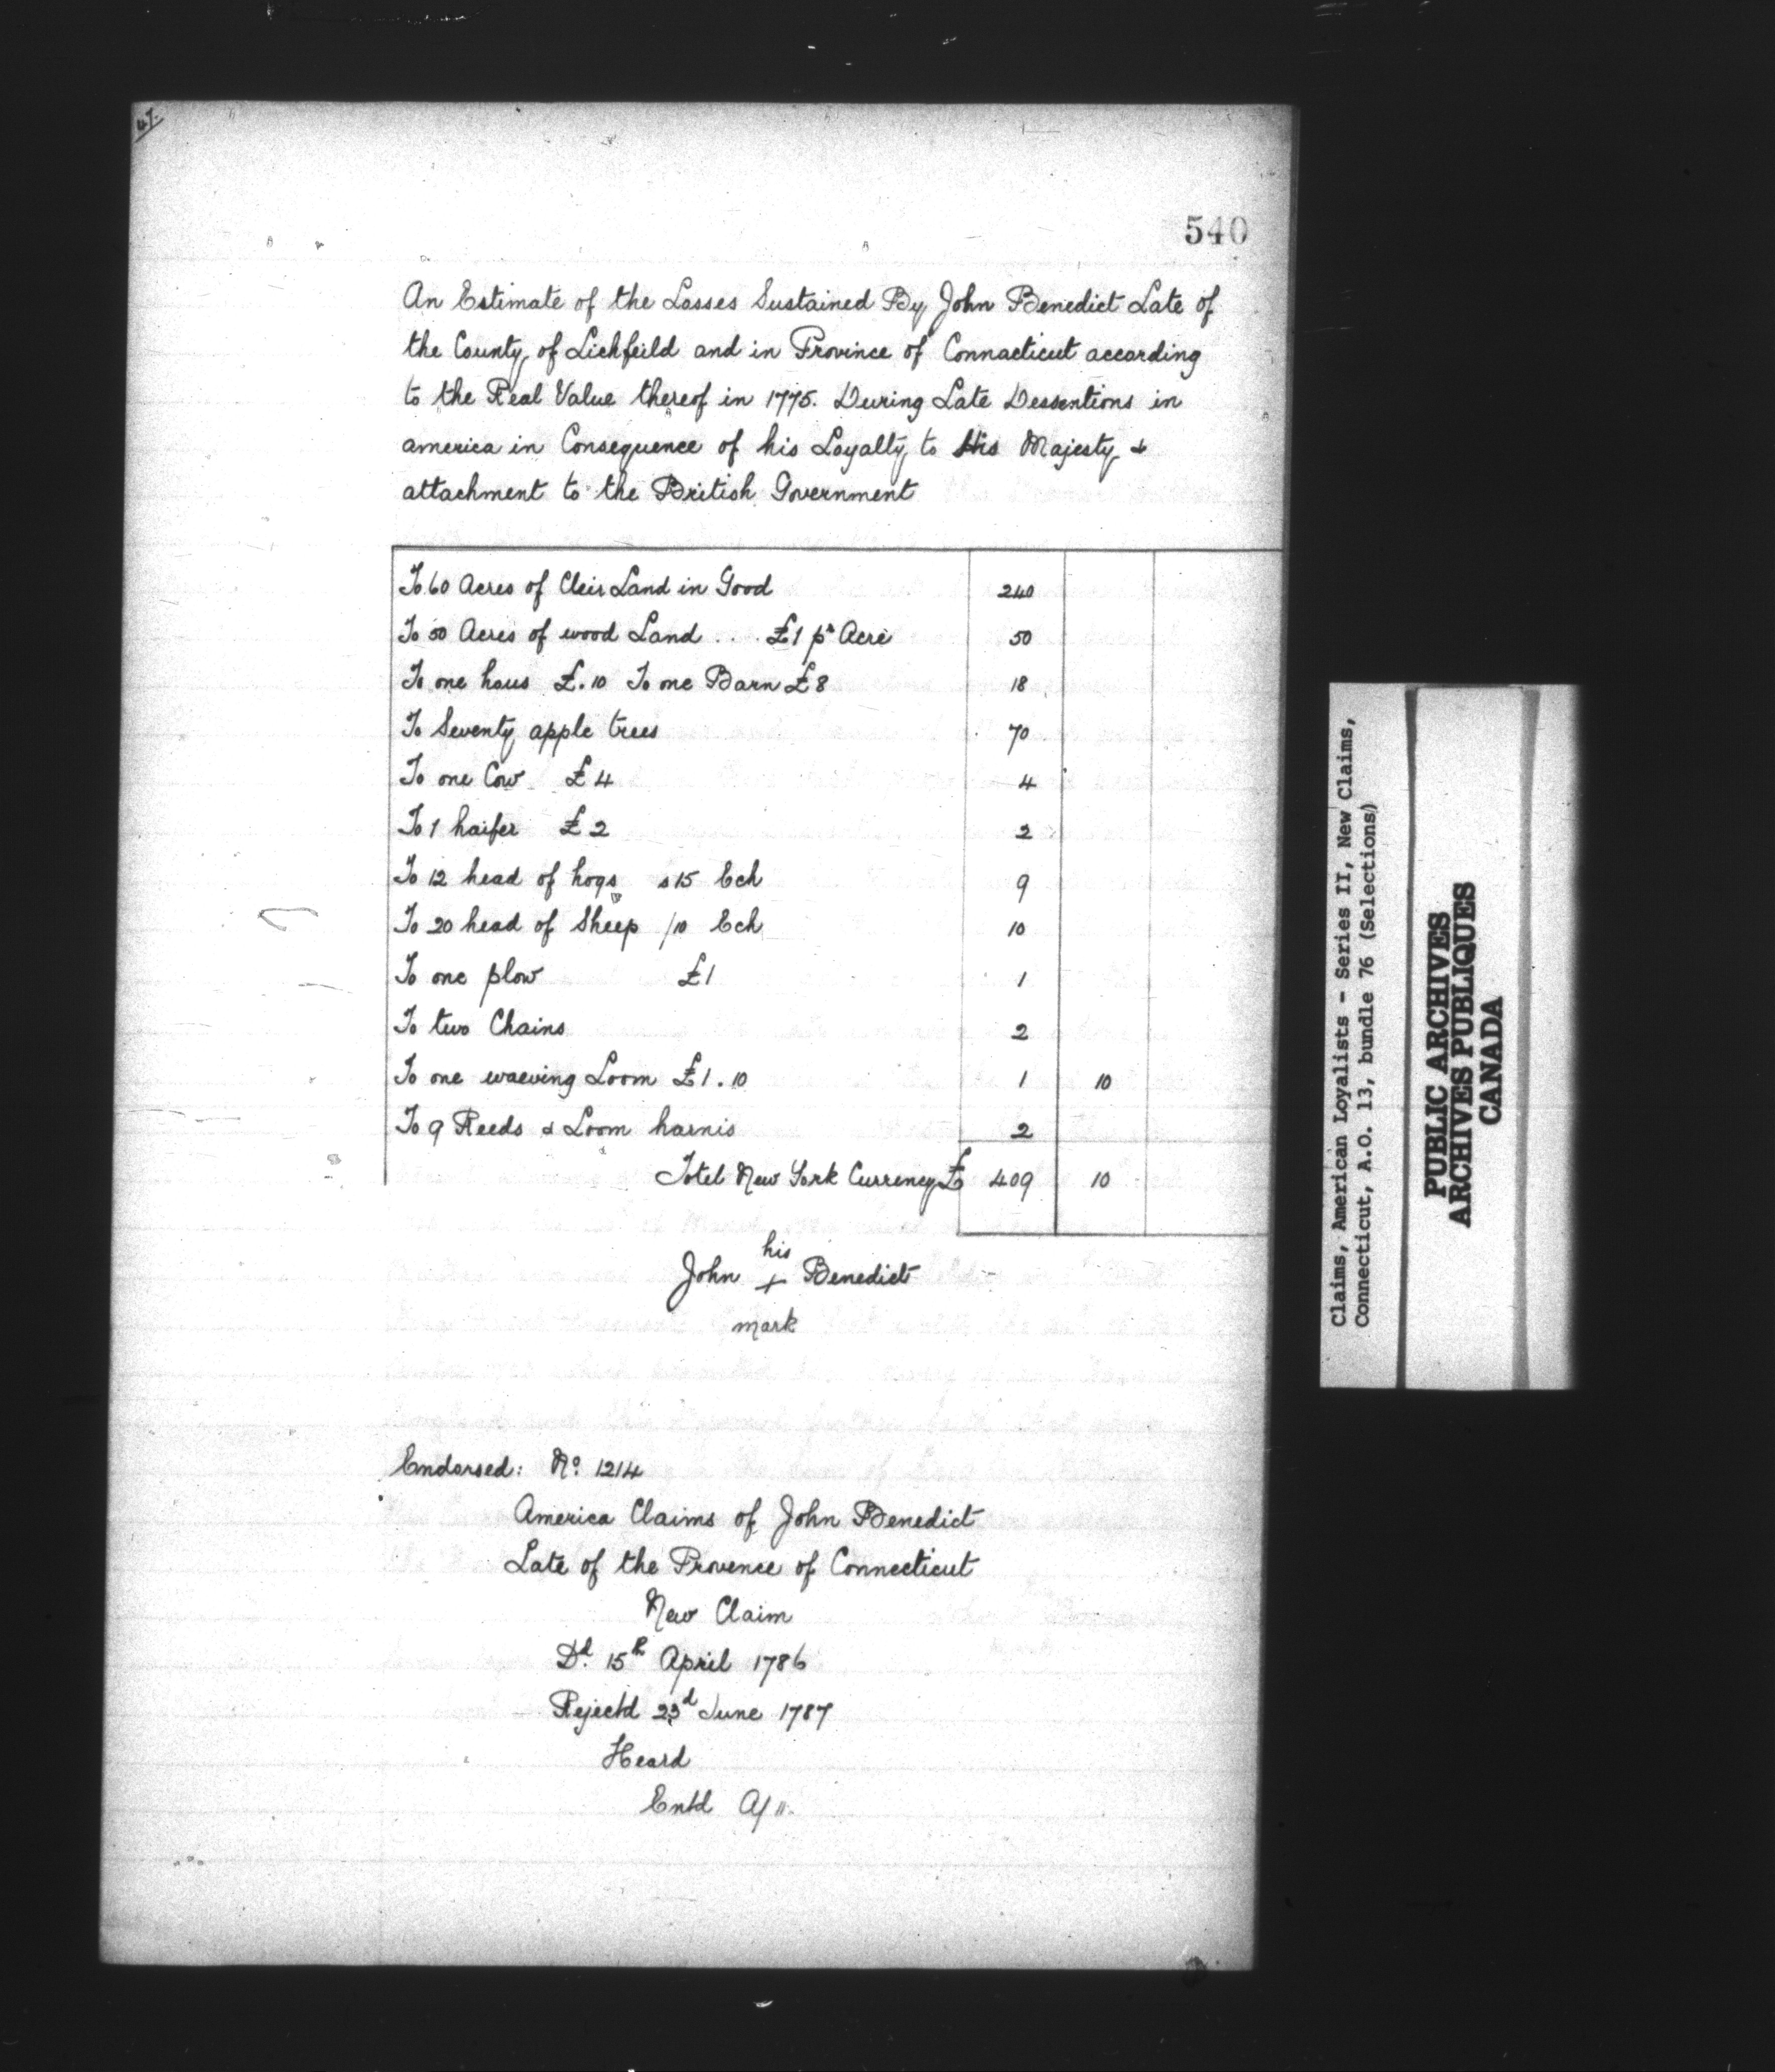 47.
540
An Estimate of the Losses Sustained By John Benedict Late of
the County of Lichfeild and in Province of Connacticut according
to the Real Value thereof in 1775. During Late Dessentions in
america in Consequence of his Loyalty to His Majesty &
attachment to the British Government
To 60 Acres of Cleir Land in Good 240
To 50 Acres of wood Land . . . £1 pr Acre 50
To one hous £.10 To one Barn £8 18
To Seventy apple trees 70
To one Cow £4 4
To 1 haifer £2 2
To 12 head of hogs s15 Ech 9
To 20 head of Sheep /10 Ech 10
To one plow £1 1
To two Chains 2
To one waeving Loom £1.10 1 10
To 9 Reeds & Loom harnis 2
Totel New York Currency £ 409 10
his
John + Benedict
mark
Endorsed: No. 1214
America Claims of John Benedict
Late of the Provence of Connecticut
New Claim
Dd. 15th April 1786
Rejectd 23d June 1787
Heard
Entd A/11.
Claims, American Loyalists - Series II, New Claims,
Connecticut, A.O. 13, bundle 76 (Selections)
PUBLIC ARCHIVES
ARCHIVES PUBLIQUES
CANADA